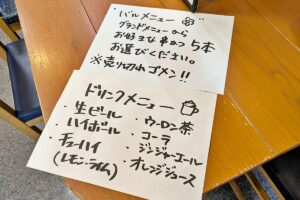 "バルメニュー"
グランドメニューから
お好きな串かつ5本
お選びください。
※売り切れゴメン!!
ドリンクメニュー
・生ビール
・ハイボール
・チューハイ
(レモン・ライム)
・ウーロン茶
・コーラ
・ジンジャーエール
・オレンジジュース